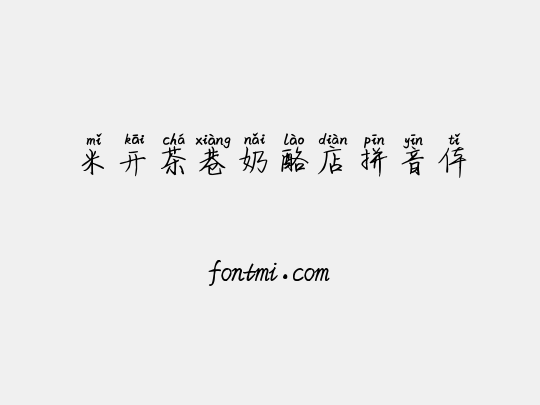 mǐ kāi chá xiàng nǎi lào diàn pīn yīn tǐ
米开茶巷奶酪店拼音体
fontmi.com